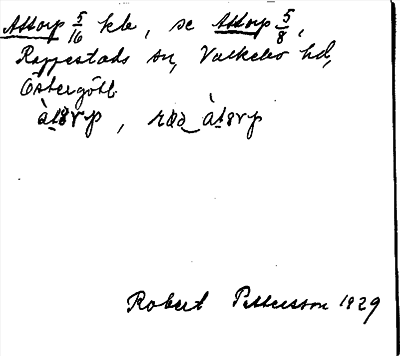 Attorp 5/16 kr, se Attorp 5/8,
Rappestads sn, Valkebo hd,
Östergötl
àt8rp, àt8rp
Robert Pettersson 1829